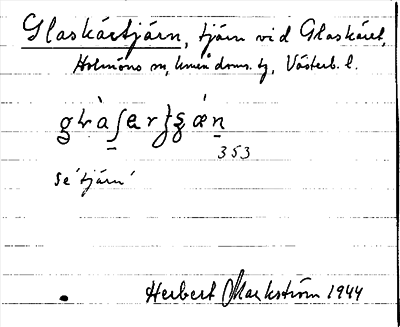 Glaskärtjärn, tjärn vid Glaskäret,
Holmöns sn, Umeå doms. tg, Västerb. l.
353
se 'tjärn'
Herbert Markström 1944